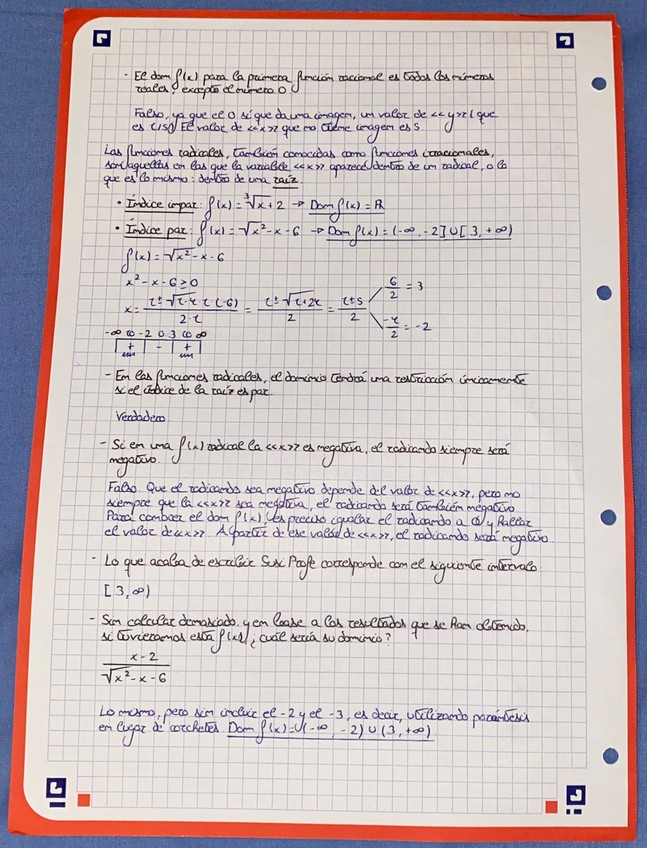 - El dom f(x) para la primera función racional es todos los números
reales, excepto el número 0
Falso, ya que el 0 sí que da una imagen, un valor de <<y>> (que
es 1/5). El valor de <<x>> que no tiene imagen es 5.
Las funciones radicales, también conocidas como funciones irracionales,
son aquellas en las que la variable <<x>> aparece dentro de un radical, o lo
que es lo mismo: dentro de una raíz.
• Índice impar: f(x) = ∛x + 2 → Dom f(x) = R
• Índice par: f(x) = √x² - x - 6 → Dom f(x) = (-∞, -2] ∪ [3, +∞)
f(x) = √x² - x - 6
x² - x - 6 ≥ 0
x = 1 ± √1 - 4 · 1 · (-6) / 2 · 1 = 1 ± √1 + 24 / 2 = 1 ± 5 / 2
6/2 = 3
-4/2 = -2
-∞ -2 0 3 ∞
+ - +
- En las funciones radicales, el dominio tendrá una restricción únicamente
si el índice de la raíz es par.
Verdadero
- Si en una f(x) radical la <<x>> es negativa, el radicando siempre será
negativo.
Falso. Que el radicando sea negativo depende del valor de <<x>>, pero no
siempre que la <<x>> sea negativa, el radicando será también negativo
Para conocer el dom f(x), es preciso igualar el radicando a 0 y hallar
el valor de <<x>>. A partir de ese valor de <<x>>, el radicando será negativo.
- Lo que acaba de escribir Susi Profe corresponde con el siguiente intervalo
[3, ∞)
- Sin calcular demasiado y en base a los resultados que se han obtenido,
si tuviéramos esta f(x), ¿cuál sería su dominio?
x - 2
√x² - x - 6
Lo mismo, pero sin incluir el -2 y el -3, es decir, utilizando paréntesis
en lugar de corchetes. Dom f(x) = (-∞, -2) ∪ (3, +∞)